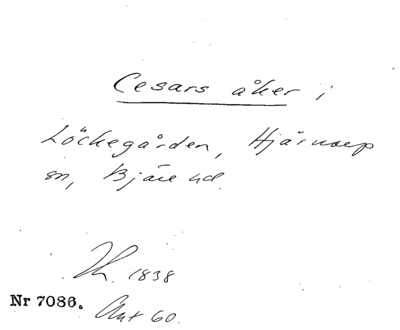 Cesars åker i
Löckegården, Hjärnarp
sn, Bjäre hd.
Lh. 1838
Nr 7086. Ant 60.